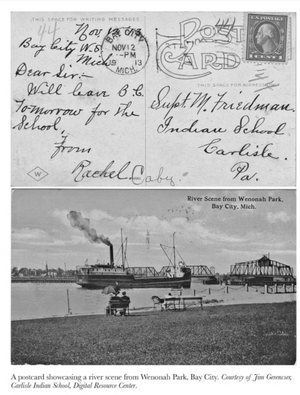 THIS SPACE FOR WRITING MESSAGES
44
Nov
Bay City W.S.
Mich.
Dear Sir:-
Will leave B.C.
Tomorrow for the
School,
From
Rachel Caby.
NOV 12
-PM
19 13
MICH.
POST
CARD
1 CENT 1
Supt. M. Friedman.
Indian School
Carlisle.
Pa.
W
River Scene from Wenonah Park,
Bay City, Mich.
A postcard showcasing a river scene from Wenonah Park, Bay City. Courtesy of Jim Gerencser,
Carlisle Indian School, Digital Resource Center.